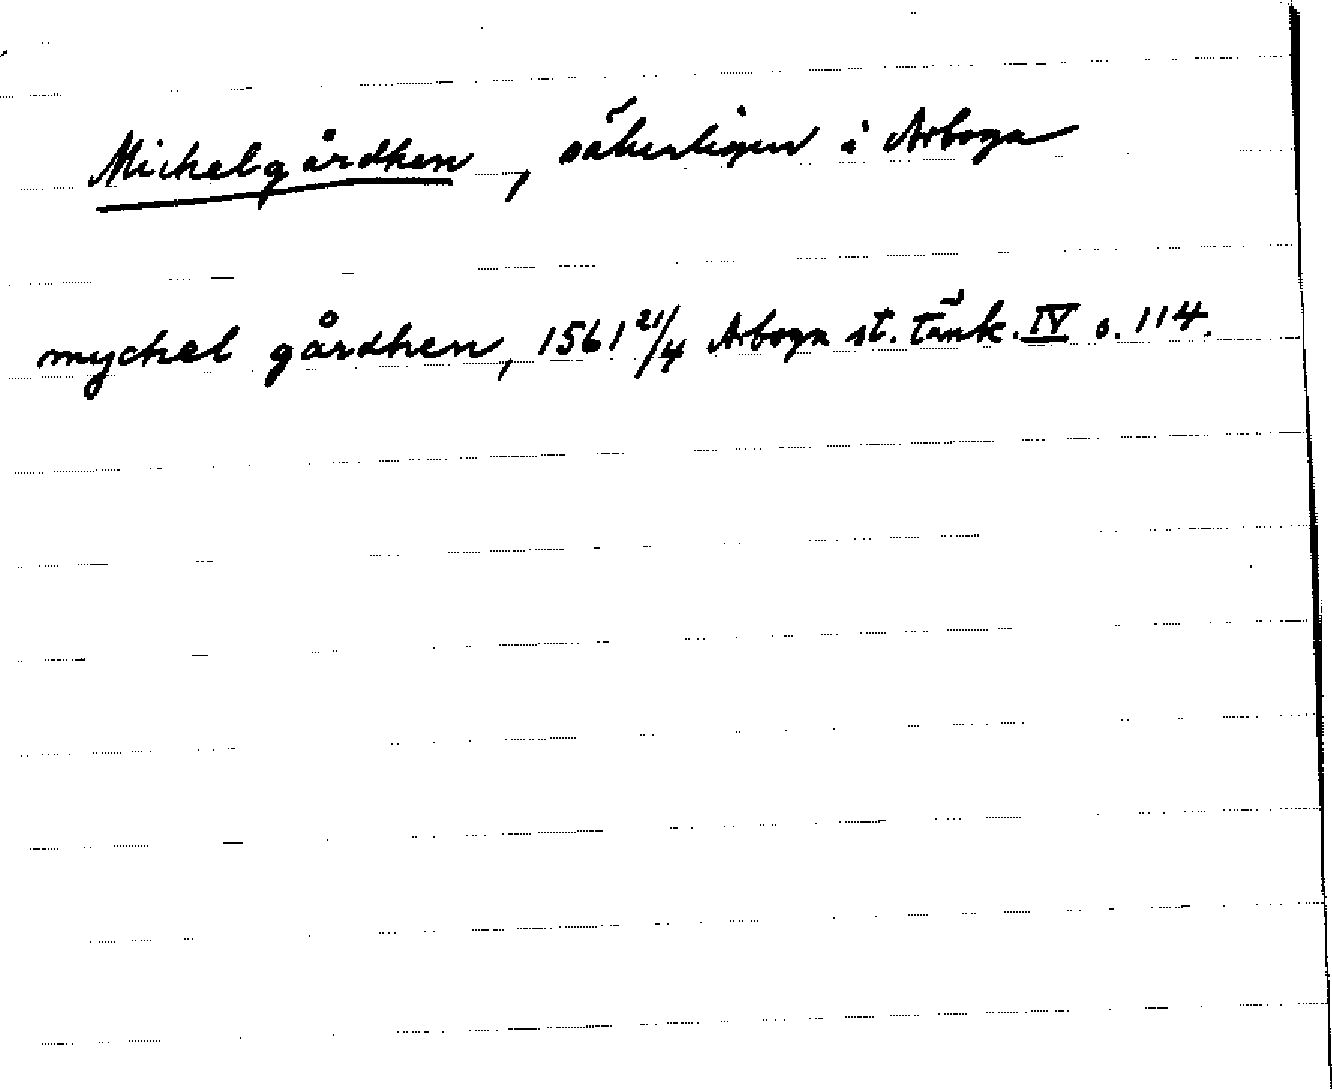 Michelgårdhen, säkerligen i Arboga
mychel gårdhen, 1561 21/4 Arboga st. tänk. IV s. 114.